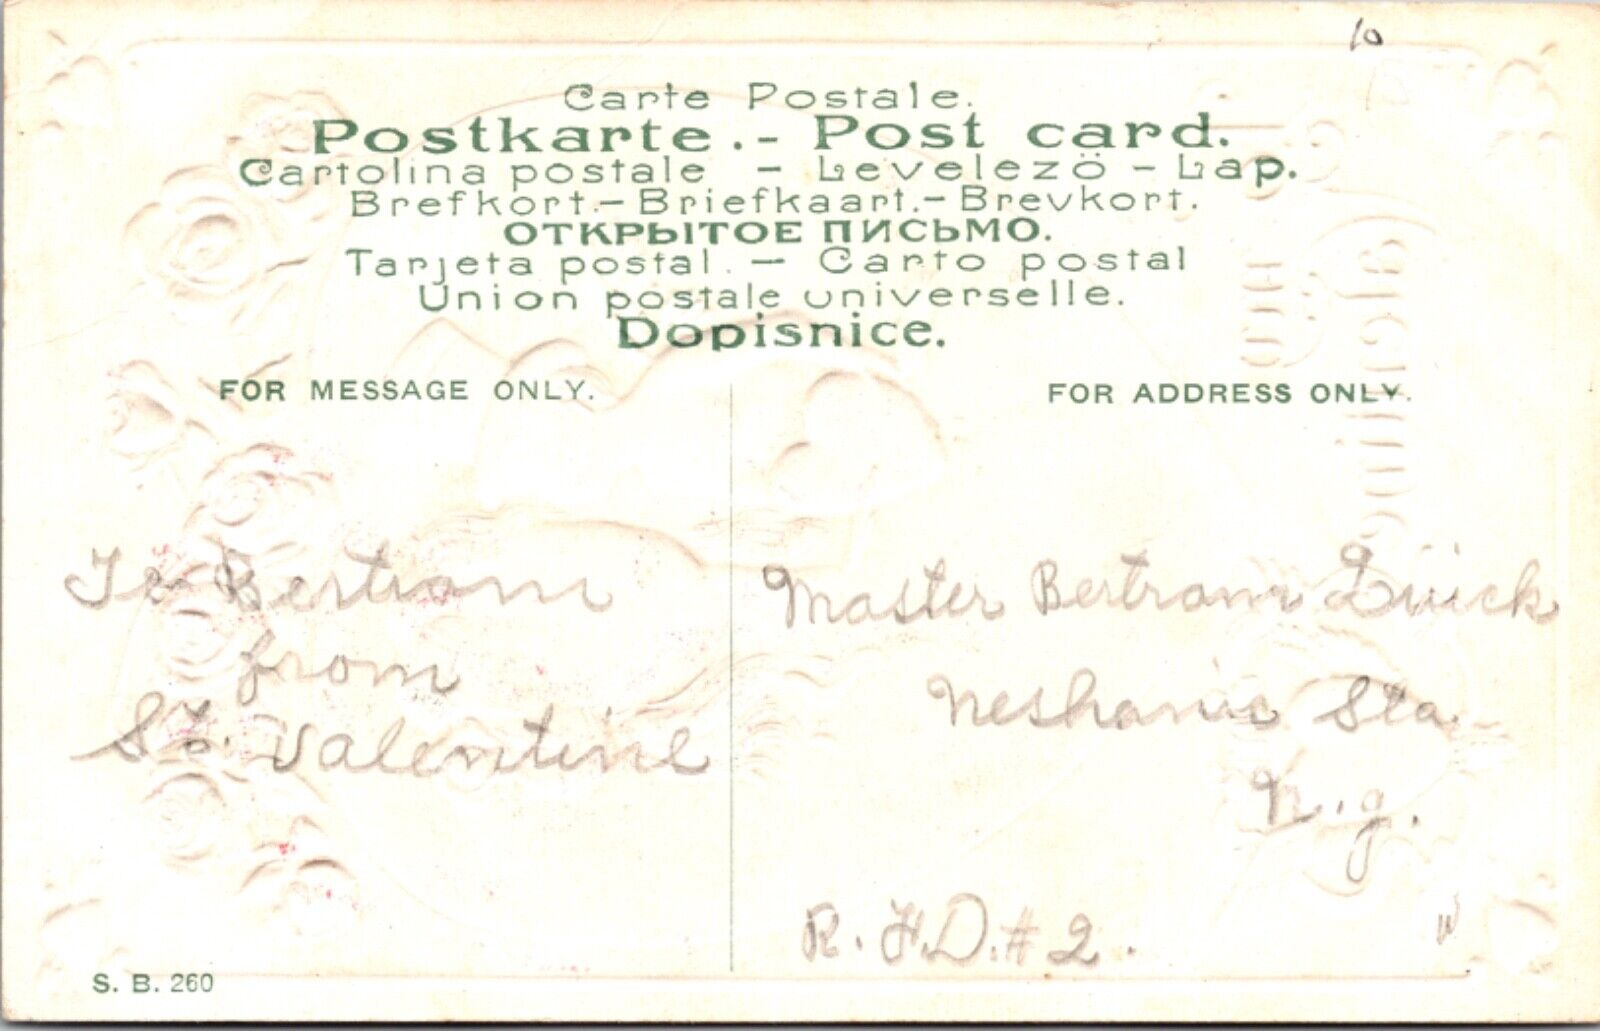 10
Carte Postale.
Postkarte. - Post card.
Cartolina postale - Levelezö - Lap.
Brefkort. - Briefkaart. - Brevkort.
ОТКРЫТОЕ ПИСЬМО.
Tarjeta postal. - Carto postal
Union postale universelle.
Dopisnice.
FOR MESSAGE ONLY.
FOR ADDRESS ONLY.
To Bertram
from
St. Valentine
Master Bertram Quick
Neshanic Sta.
N.J.
R.F.D. # 2.
S. B. 260